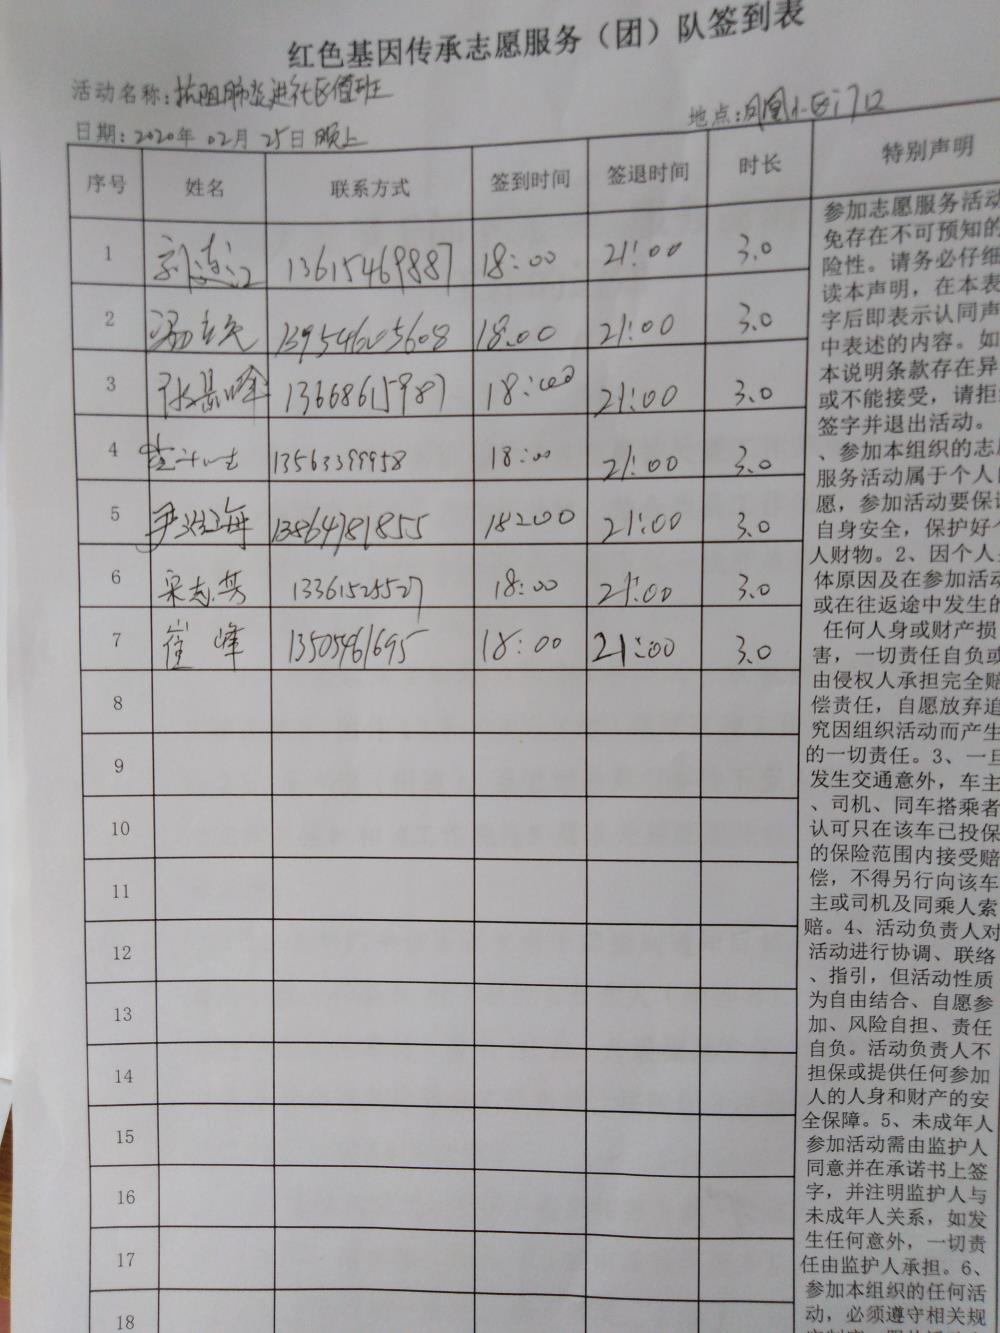 红色基因传承志愿服务（团）队签到表
活动名称：抗阻肺炎进社区值班
日期：2020年 02月 25日 晚上
地点：凤凰小区门口
序号 姓名 联系方式 签到时间 签退时间 时长 特别声明
1 13615469887 18:00 21:00 3.0
2 13954605608 18:00 21:00 3.0
3 张岳峰 13668615987 18:00 21:00 3.0
4 13563399958 18:00 21:00 3.0
5 13864781855 18:00 21:00 3.0
6 宋志芳 13361525527 18:00 21:00 3.0
7 崔峰 13505461695 18:00 21:00 3.0
8
9
10
11
12
13
14
15
16
17
18
参加志愿服务活动
免存在不可预知的
险性。请务必仔细
读本声明，在本表
字后即表示认同声
中表述的内容。如
本说明条款存在异
或不能接受，请拒
签字并退出活动。
、参加本组织的志
服务活动属于个人
愿，参加活动要保
自身安全，保护好个
人财物。2、因个人
体原因及在参加活动
或在往返途中发生的
任何人身或财产损
害，一切责任自负或
由侵权人承担完全赔
偿责任，自愿放弃追
究因组织活动而产生
的一切责任。3、一旦
发生交通意外，车主
、司机、同车搭乘者
认可只在该车已投保
的保险范围内接受赔
偿，不得另行向该车
主或司机及同乘人索
赔。4、活动负责人对
活动进行协调、联络
、指引，但活动性质
为自由结合、自愿参
加、风险自担、责任
自负。活动负责人不
担保或提供任何参加
人的人身和财产的安
全保障。5、未成年人
参加活动需由监护人
同意并在承诺书上签
字，并注明监护人与
未成年人关系，如发
生任何意外，一切责
任由监护人承担。6、
参加本组织的任何活
动，必须遵守相关规